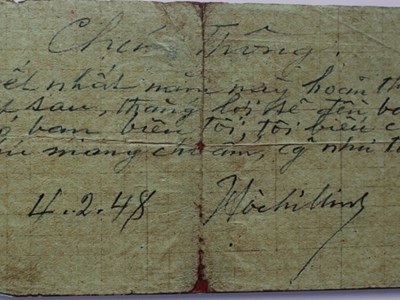 Chú Thông.
ết nhất năm nay hoãn th
t sau, thắng lợi sẽ đền b
ó bạn biếu tôi, tôi biếu c
hú mang cho ấm, cg như t
4.2.48 Hồ Chí Minh